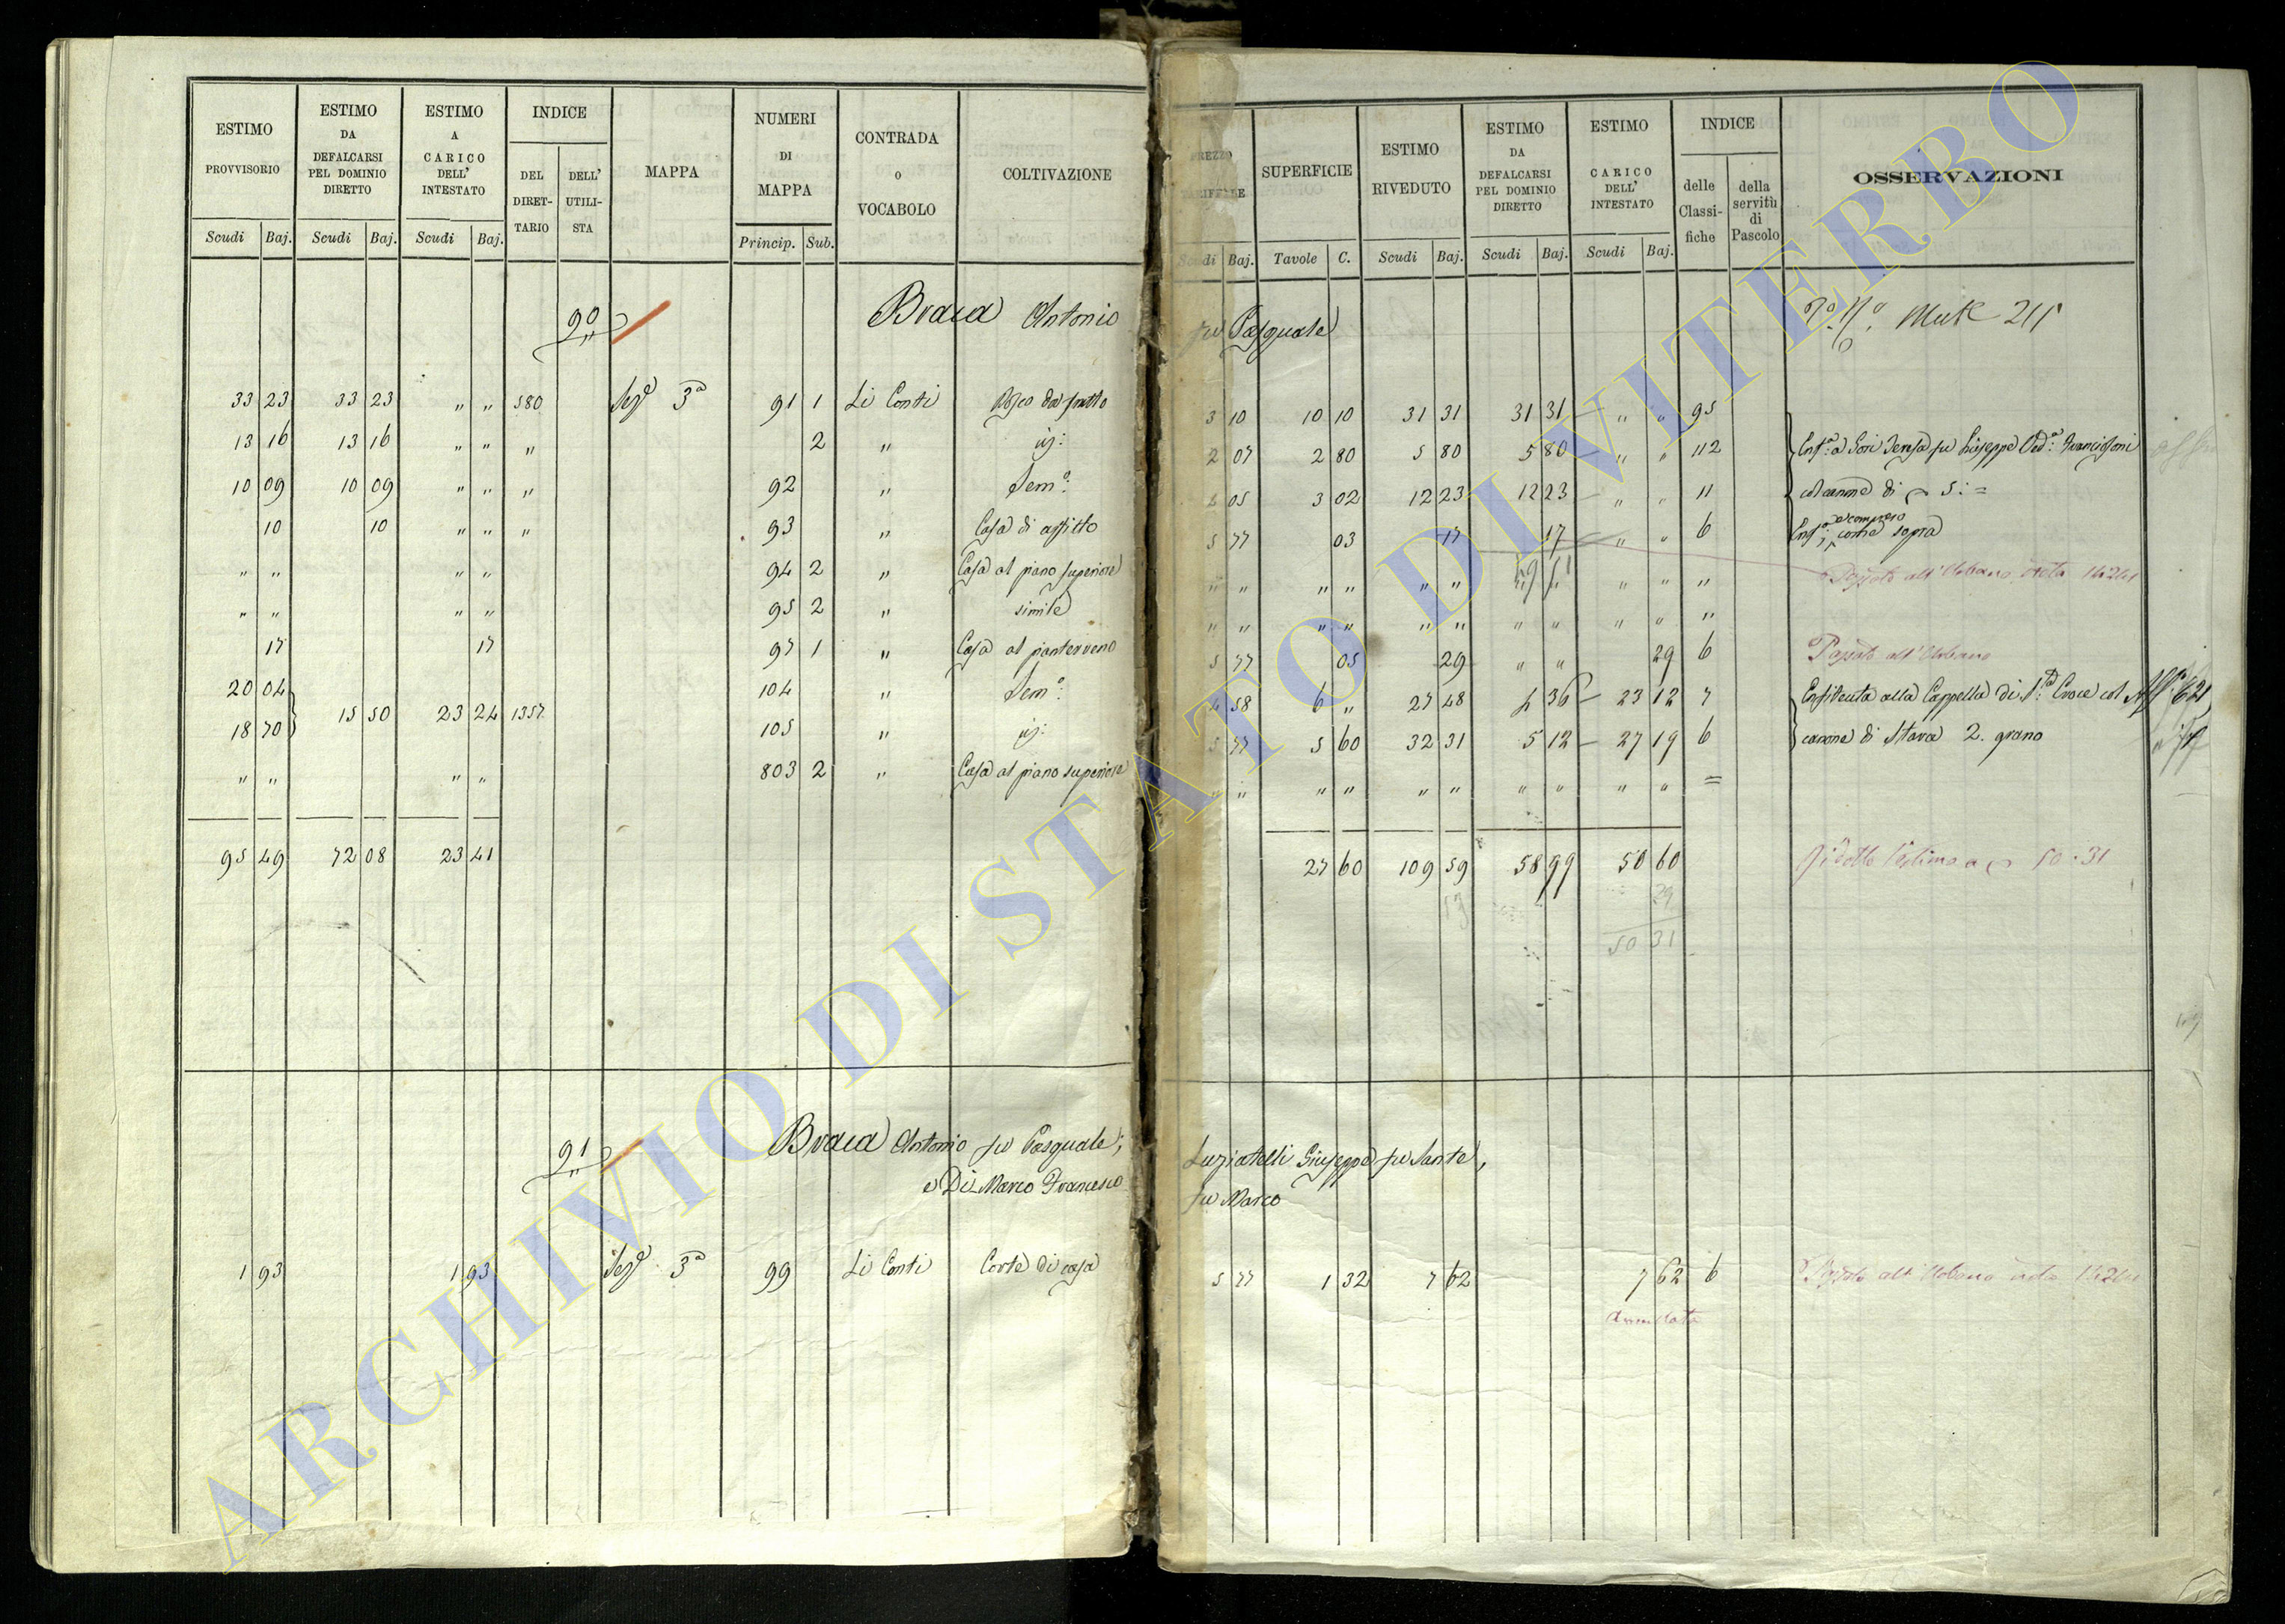 ESTIMO PROVVISORIO | ESTIMO DA DEFALCARSI PEL DOMINIO DIRETTO | ESTIMO A CARICO DELL' INTESTATO | INDICE | MAPPA | NUMERI DI MAPPA | CONTRADA O VOCABOLO | COLTIVAZIONE
DEL DIRETTARIO | DELL' UTILISTA
Scudi | Baj. | Scudi | Baj. | Scudi | Baj. | Princip. | Sub.
90 Braca Antonio
33 23 | 33 23 | " " | 580 | Sez.e 3a | 91 | 1 | Li Conti | Bosco da frutto
13 16 | 13 16 | " " | " | 2 | " | id:
10 09 | 10 09 | " " | " | 92 | " | Sem.o:
10 | 10 | " " | " | 93 | " | Casa di affitto
" " | " " | 94 | 2 | " | Casa al piano superiore
" " | " " | 95 | 2 | " | simile
17 | 17 | 97 | 1 | " | Casa al pianterreno
20 04 | 104 | " | Sem.o:
15 50 | 23 24 | 1357
18 70 | 105 | " | id:
" " | " " | 803 | 2 | " | Casa al piano superiore
95 49 | 72 08 | 23 41
91 Braca Antonio fu Pasquale;
e Di Marco Francesco
1 93 | 1 93 | Sez.e 3a | 99 | Li Conti | Corte di casa
PREZZO TARIFFALE | SUPERFICIE | ESTIMO RIVEDUTO | ESTIMO DA DEFALCARSI PEL DOMINIO DIRETTO | ESTIMO CARICO DELL' INTESTATO | INDICE | OSSERVAZIONI
delle Classifiche | della servitù di Pascolo
Scudi | Baj. | Tavole | C. | Scudi | Baj. | Scudi | Baj. | Scudi | Baj.
fu Pasquale
211
3 10 | 10 10 | 31 31 | 31 31 | " " | 95
2 07 | 2 80 | 5 80 | 5 80 | " " | 112 | Enf.a: a Gori Teresa fu Giuseppe Ved.a: Francioni
05 | 3 02 | 12 23 | 12 23 | " " | 11 | col canone di 5: =
5 77 | 03 | 17 | 17 | " " | 6 | come sopra
" " | " " | " " | " " | " " | " | Passato all'Urbano
" " | " " | " " | " " | " " | "
5 77 | 05 | 29 | " " | 29 | 6 | Passato all'Urbano
4 58 | 6 " | 27 48 | 4 36 | 23 12 | 7 | Enfiteuta alla Cappella di S.a Croce col
5 77 | 5 60 | 32 31 | 5 12 | 27 19 | 6 | canone di Stara 2. grano
" " | " " | " " | " " | " " | =
27 60 | 109 59 | 58 99 | 50 60 | Ridotto l'estimo a 50.31
29
50 31
Luziatelli Giuseppe fu Sante,
fu Marco
5 77 | 1 32 | 7 62 | 7 62 | 6 | Passato all'Urbano
Annullata
ARCHIVIO DI STATO DI VITERBO